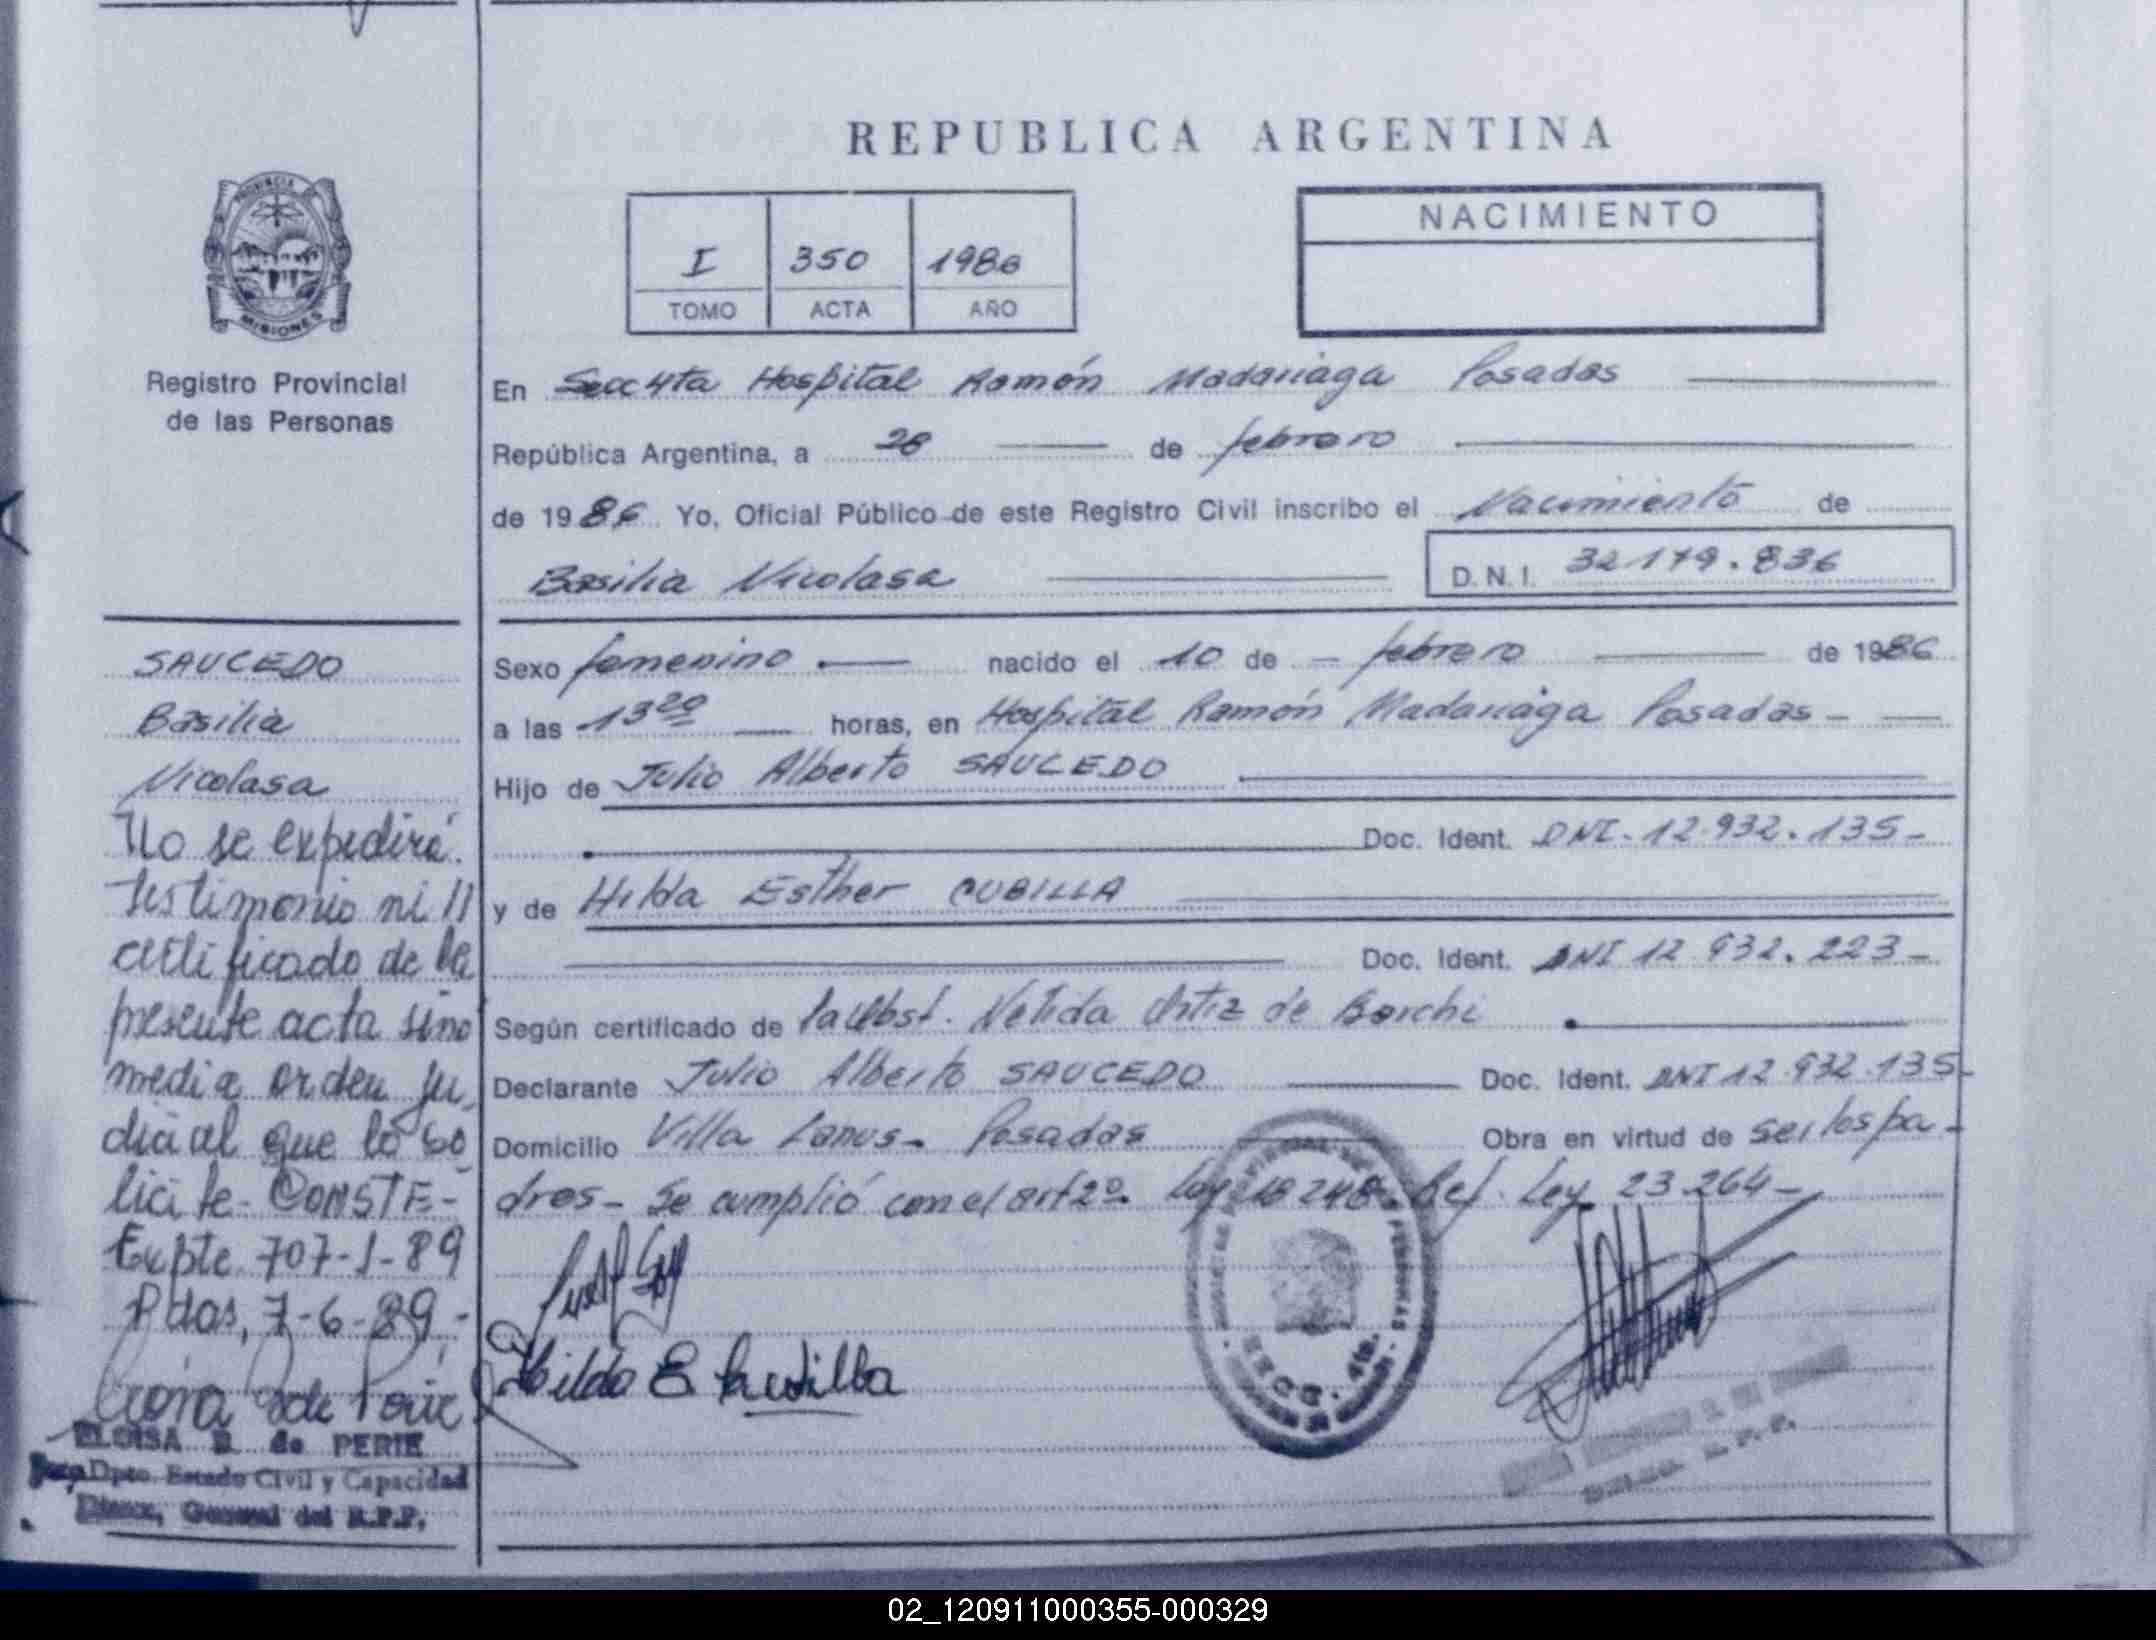 REPUBLICA ARGENTINA
PROVINCIA
MISIONES
Registro Provincial
de las Personas
I 350 1986
TOMO ACTA AÑO
NACIMIENTO
En Secc 4ta Hospital Ramón Madariaga Posadas
República Argentina, a 28 de febrero
de 1986 Yo, Oficial Público de este Registro Civil inscribo el Nacimiento de
Basilia Nicolasa D.N.I. 32179.836
Sexo femenino nacido el 10 de febrero de 1986
a las 13 20 horas, en Hospital Ramón Madariaga Posadas-
Hijo de Julio Alberto SAUCEDO
Doc. Ident. DNI-12.932.135-
y de Hilda Esther CUBILLA
Doc. Ident. DNI 12 932.223-
Según certificado de la Obst. Nelida Ortiz de Borchi
Declarante Julio Alberto SAUCEDO Doc. Ident. DNI 12.932.135-
Domicilio Villa Lanus- Posadas Obra en virtud de ser los pa-
dres- Se cumplió con el art 2º Ley 18248 Ref. Ley 23264-
Hilda E Cubilla
SAUCEDO
Basilia
Nicolasa
No se expedirá
testimonio ni //
certificado de la
presente acta sino
media orden ju-
dicial que lo so-
licite- CONSTE-
Expte. 707-J-89
Pdas, 7-6-89.-
ELOISA B. de PERIE
Jefa Dpto. Estado Civil y Capacidad
Direcc. General del R.P.P.
02_120911000355-000329